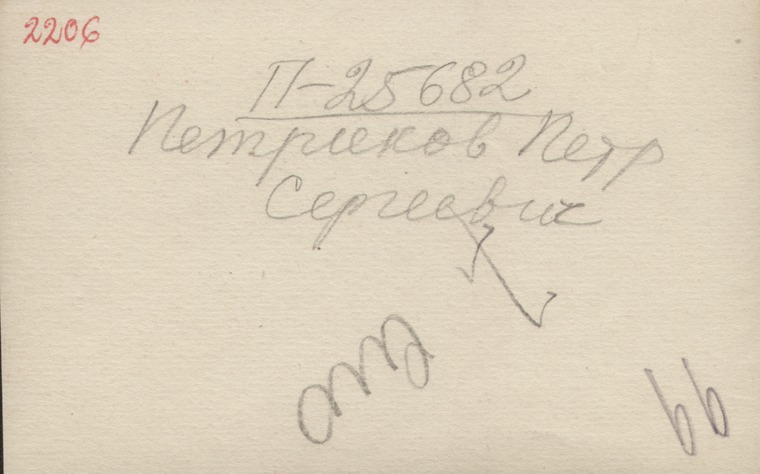 2206
П-25682
Петриков Петр
Сергеевич
66